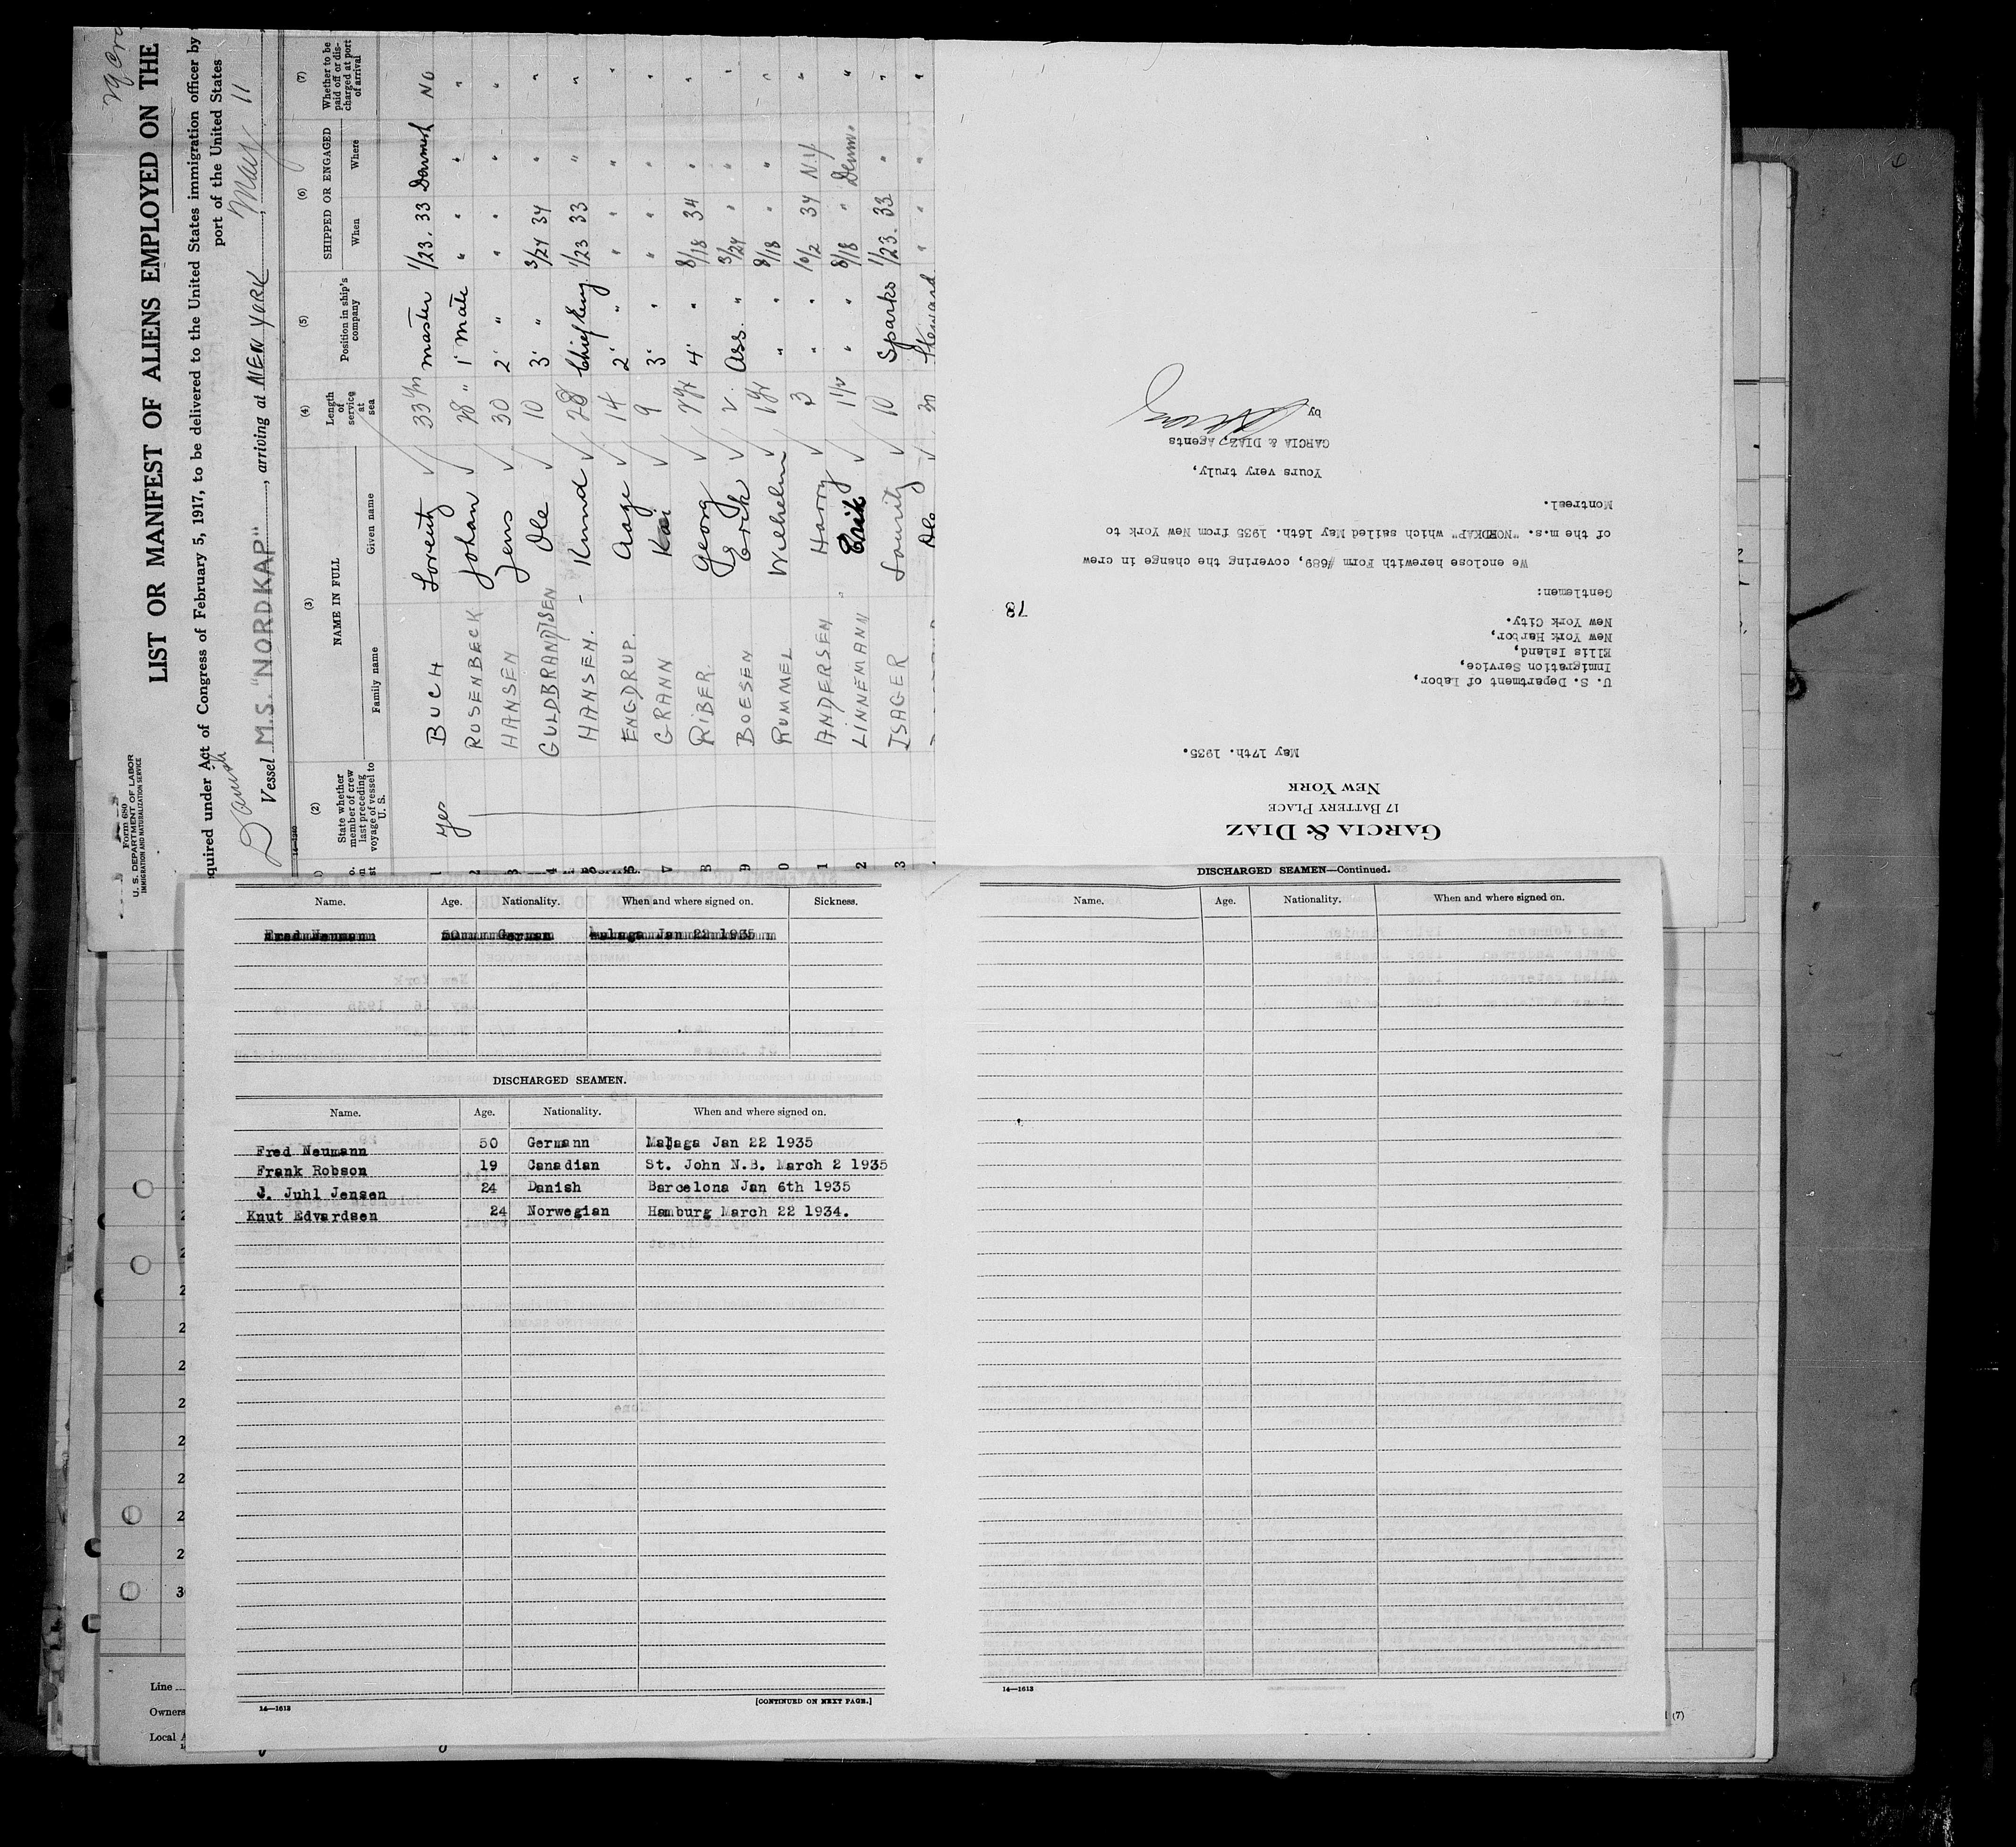 Form 680
U. S. DEPARTMENT OF LABOR
IMMIGRATION AND NATURALIZATION SERVICE
LIST OR MANIFEST OF ALIENS EMPLOYED ON THE
equired under Act of Congress of February 5, 1917, to be delivered to the United States immigration officer by
port of the United States
Danish
Vessel M.S. "NORDKAP", arriving at NEW YORK, May 11
14—1240
(2) (3) (4) (5) (6) (7)
State whether member of crew last preceding voyage of vessel to U. S.
NAME IN FULL
Family name Given name
Length of service at sea
Position in ship's company
SHIPPED OR ENGAGED
When Where
Whether to be paid off or discharged at port of arrival
1 yes BUCH Lorentz 33 master 1/23. 33 No
2 ROSENBECK Johan 28 " 1' mate " " "
3 HANSEN Jens 30 2' " " " "
4 GULDBRANDTSEN Ole 10 3' " 3/24 34 " "
5 HANSEN. Knud 28 Chief Eng 1/23 33 " "
6 ENGDRUP. Aage 14 2' " " " "
7 GRANN Kai 9 3' " " " "
8 RIBER. Georg 4' " 8/18 34 " "
9 BOESEN Erik Ass. " 3/24 " " "
0 RUMMEL Wilhelm " " 8/18 " " "
1 ANDERSEN Harry 3 " " 10/2 34 N.Y "
2 LINNEMANN Erik " " 8/18 " "
3 ISAGER Lauritz 10 Sparks 1/23. 33 " "
30 Steward " " "
GARCIA & DIAZ
17 BATTERY PLACE
NEW YORK
May 17th. 1935.
U. S. Department of Labor,
Inmigration Service,
Ellis Island,
New York Harbor,
New York City.
78
Gentlemen:
We enclose herewith Form #689, covering the change in crew
of the m.s. "NORDKAP" which sailed May 16th. 1935 from New York to
Montreal.
Yours very truly,
GARCIA & DIAZ, Agents
by
Name. Age. Nationality. When and where signed on. Sickness.
Fred Neumann 50 German Malaga Jan 22 1935
DISCHARGED SEAMEN.
Name. Age. Nationality. When and where signed on.
Fred Neumann 50 Germann Malaga Jan 22 1935
Frank Robson 19 Canadian St. John N.B. March 2 1935
J. Juhl Jensen 24 Danish Barcelona Jan 6th 1935
Knut Edvardsen 24 Norwegian Hamburg March 22 1934.
14—1613
[CONTINUED ON NEXT PAGE.]
DISCHARGED SEAMEN—Continued.
Name. Age. Nationality. When and where signed on.
14—1613
Line
Owners
Local A
(7)